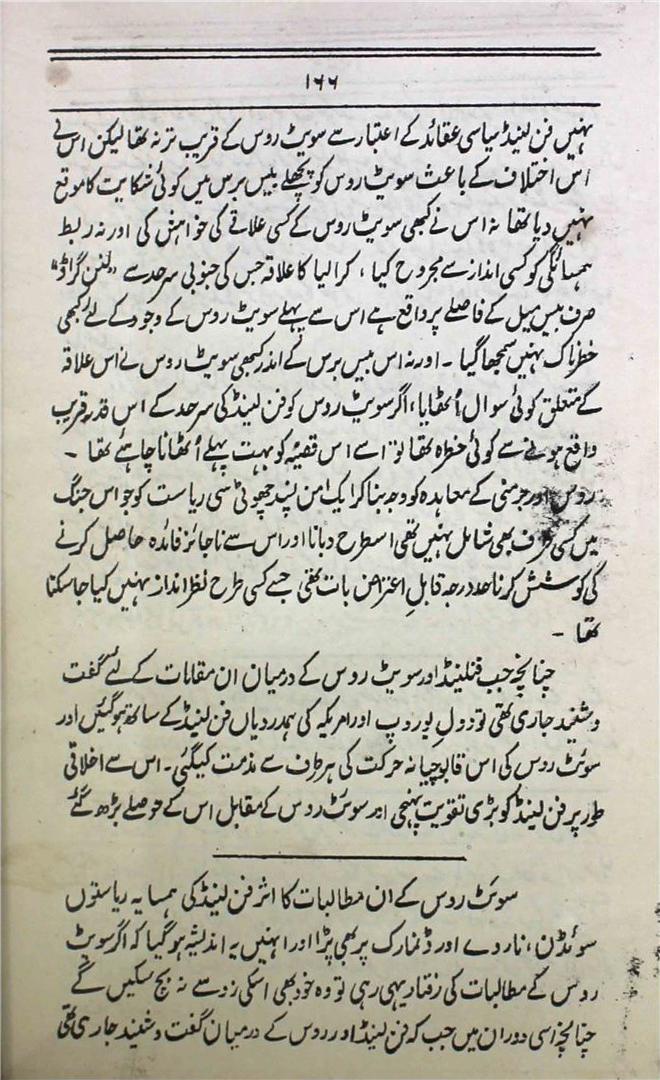 ۱۶۶
نہیں فن لینڈ سیاسی عقائد کے اعتبار سے سویٹ روس کے قریب تر نہ تھا لیکن اس نے
اس اختلاف کے باعث سویٹ روس کو پچھلے بیس برس میں کوئی شکایت کا موقع
نہیں دیا تھا نہ اس نے کبھی سویٹ روس کے کسی علاقے کی خواہش کی اور نہ ربط
ہمسائگی کو کسی انداز سے مجروح کیا ، کرالیا کا علاقہ جس کی جنوبی سرحد سے "لنن گراڈ"
صرف بیس میل کے فاصلے پر واقع ہے اس سے پہلے سویٹ روس کے وجود کے لئے کبھی
خطرناک نہیں سمجھا گیا ۔ اور نہ اس بیس برس کے اندر کبھی سویٹ روس نے اس علاقہ
کے متعلق کوئی سوال اُٹھایا، اگر سویٹ روس کو فن لینڈ کی سرحد کے اس قدر قریب
واقع ہونے سے کوئی خطرہ تھا تو اسے اس قضیّہ کو بہت پہلے اُٹھانا چاہئے تھا ۔
روس اور جرمنی کے معاہدہ کو وجہ بنا کر ایک امن پسند چھوٹی سی ریاست کو جو اس جنگ
میں کسی طرف بھی شامل نہیں تھی اسطرح دبانا اور اس سے ناجائز فائدہ حاصل کرنے
کی کوشش کرنا حد درجہ قابلِ اعتراض بات تھی جسے کسی طرح نظر انداز نہیں کیا جا سکتا
تھا ۔
چنانچہ جب فنلینڈ اور سویٹ روس کے درمیان ان مقامات کے لئے گفت
و شنید جاری تھی تو دول یوروپ اور امریکہ کی ہمدردیاں فن لینڈ کے ساتھ ہوگئیں اور
سوئٹ روس کی اس قابوچیانہ حرکت کی ہر طرف سے مذمت کیگئی۔ اس سے اخلاقی
طور پر فن لینڈ کو بڑی تقویت پہنچی اور سوئٹ روس کے مقابل اس کے حوصلے بڑھ گئے
سوئٹ روس کے ان مطالبات کا اثر فن لینڈ کی ہمسایہ ریاستوں
سوئڈن، ناروے اور ڈنمارک پر بھی پڑا اور انہیں یہ اندیشہ ہو گیا کہ اگر سویٹ
روس کے مطالبات کی رفتار یہی رہی تو وہ خود بھی اسکی زد سے نہ بچ سکیں گے
چنانچہ اسی دوران میں جب کہ فن لینڈ اور روس کے درمیان گفت و شنید جاری تھی